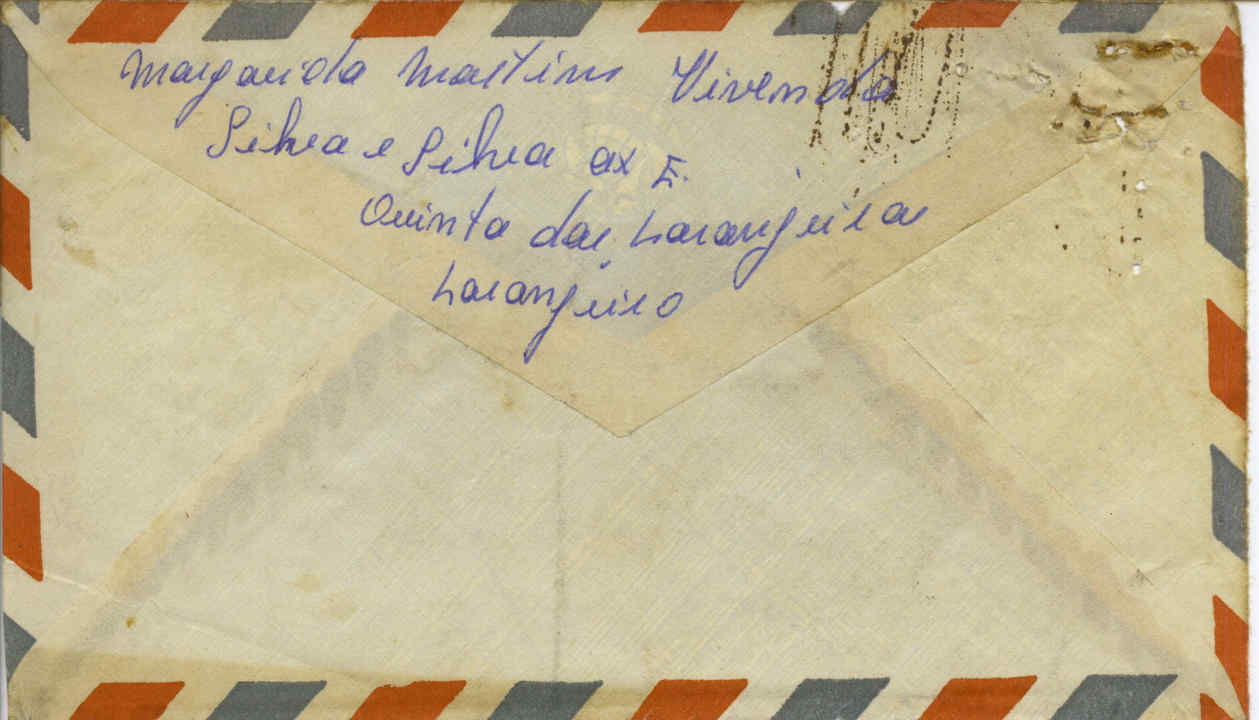 Margarida Martins Vivenda
Silva e Silva
Quinta das Laranjeiras
Laranjeiro